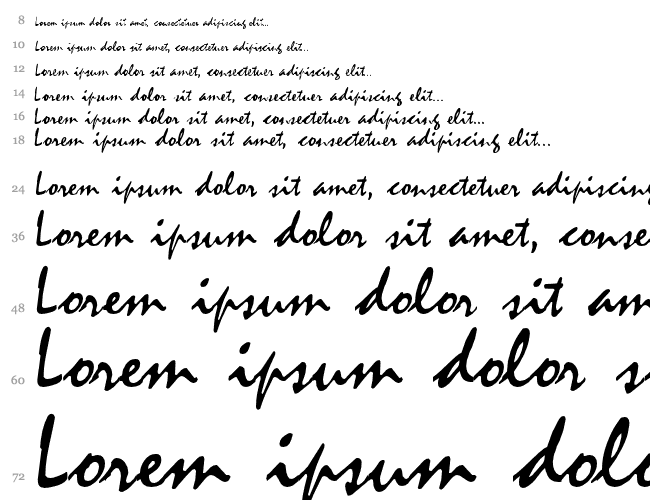 8 Lorem ipsum dolor sit amet, consectetuer adipiscing elit...
10 Lorem ipsum dolor sit amet, consectetuer adipiscing elit...
12 Lorem ipsum dolor sit amet, consectetuer adipiscing elit...
14 Lorem ipsum dolor sit amet, consectetuer adipiscing elit...
16 Lorem ipsum dolor sit amet, consectetuer adipiscing elit...
18 Lorem ipsum dolor sit amet, consectetuer adipiscing elit...
24 Lorem ipsum dolor sit amet, consectetuer adipiscing
36 Lorem ipsum dolor sit amet, conse
48 Lorem ipsum dolor sit am
60 Lorem ipsum dolor s
72 Lorem ipsum dolo